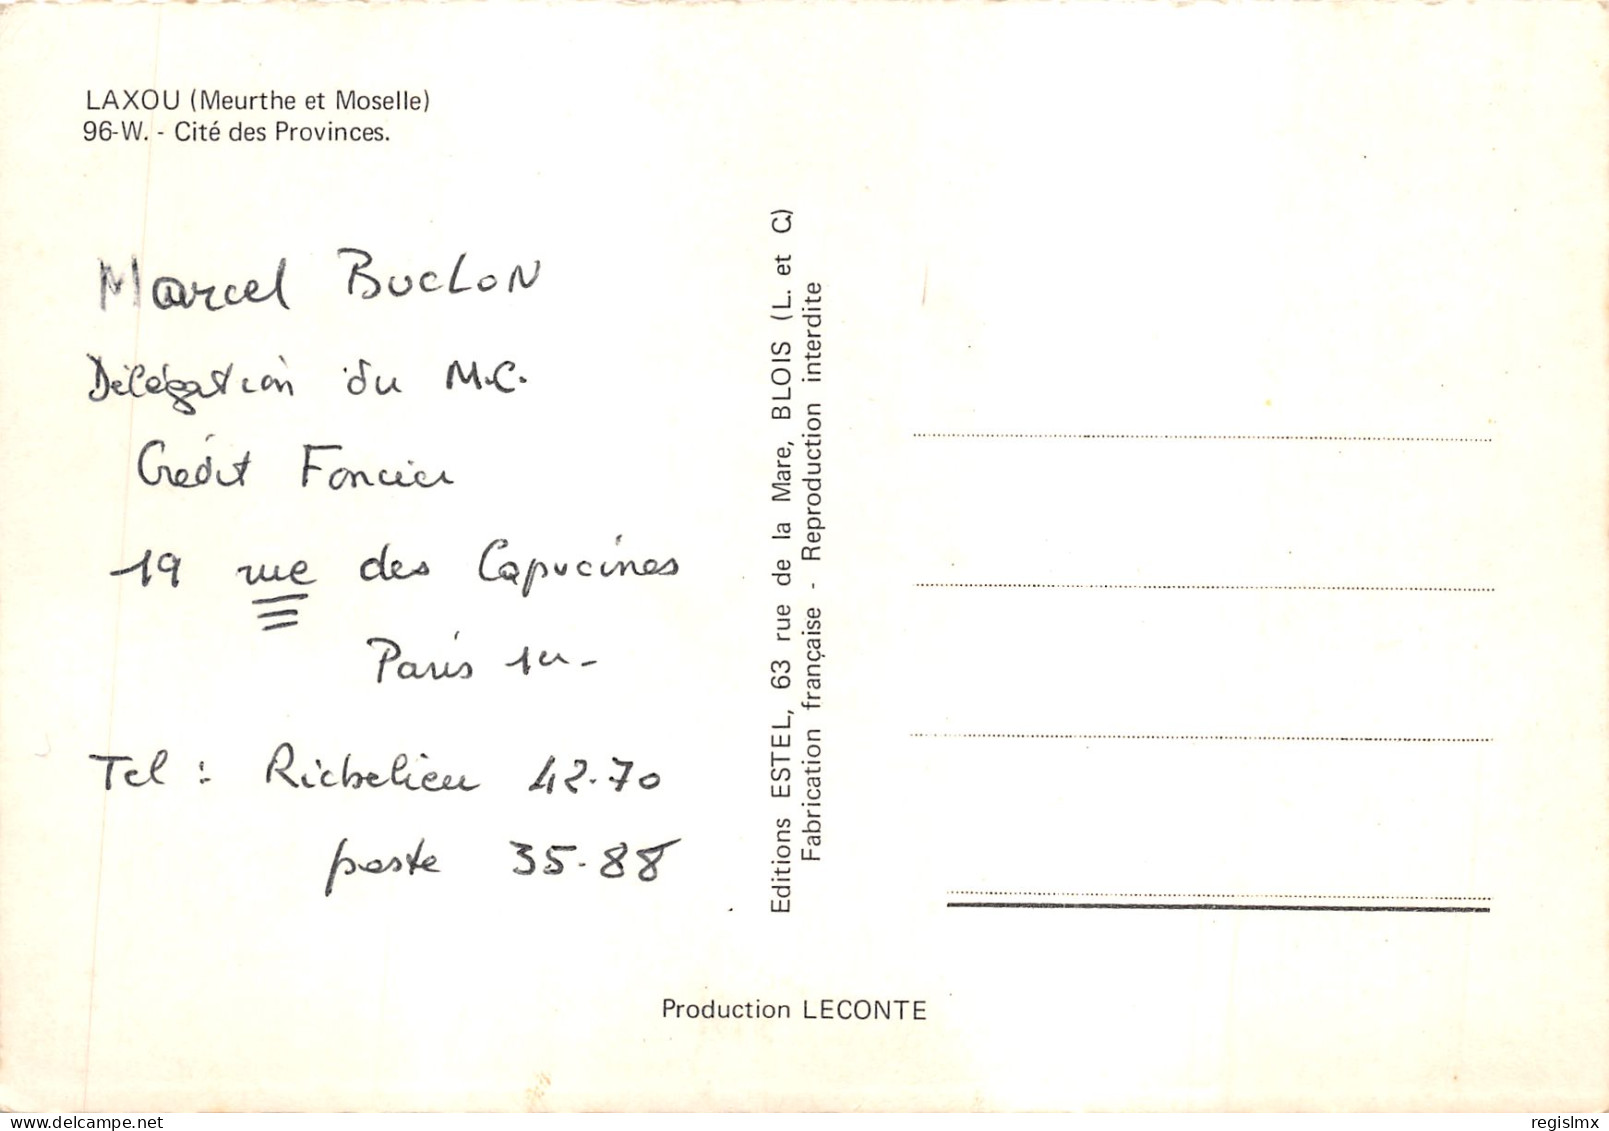 LAXOU (Meurthe et Moselle)
96-W. - Cité des Provinces.
Marcel BUCLON
Délégation du M.C.
Crédit Foncier
19 rue des Capucines
Paris 1er -
Tel : Richelieu 42-70
poste 35-88
Editions ESTEL, 63 rue de la Mare, BLOIS (L. et C)
Fabrication française - Reproduction interdite
Production LECONTE
delcampe.net
regislmx